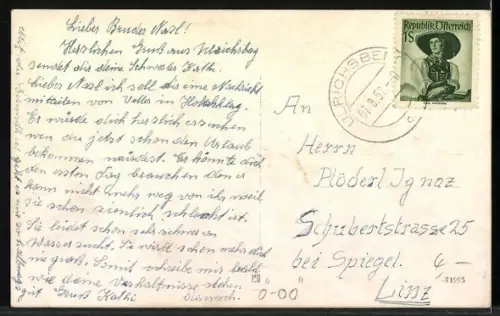 Lieber Bruder Nazl!
Herzlichen Gruß aus Ulrichsbg
sendet dir deine Schwester Kathi.
Lieber Nazl ich soll dir eine Nachricht
mitteilen von Vetter in
Er würde dich herzlich ersuchen
wen du jetzt schon den Urlaub
bekommen würdest. Er könnte dich
den ersten Tag brauchen den er
kann nicht mehr weg von ihr weil
sie schon ziemlich schlecht ist.
Sie leidet schon sehr schwer an
Wassersucht. Sie wird schon mehr dick
wie groß. Somit schreibe mir bald
wie deine Verhältnisse stehen
Gruß Kathi
ULRICHSBERG
Republik Österreich
1S
An
Herrn
Plöderl Ignaz
Schubertstrasse 25
bei Spiegel.
Linz
4-
71995
0-00